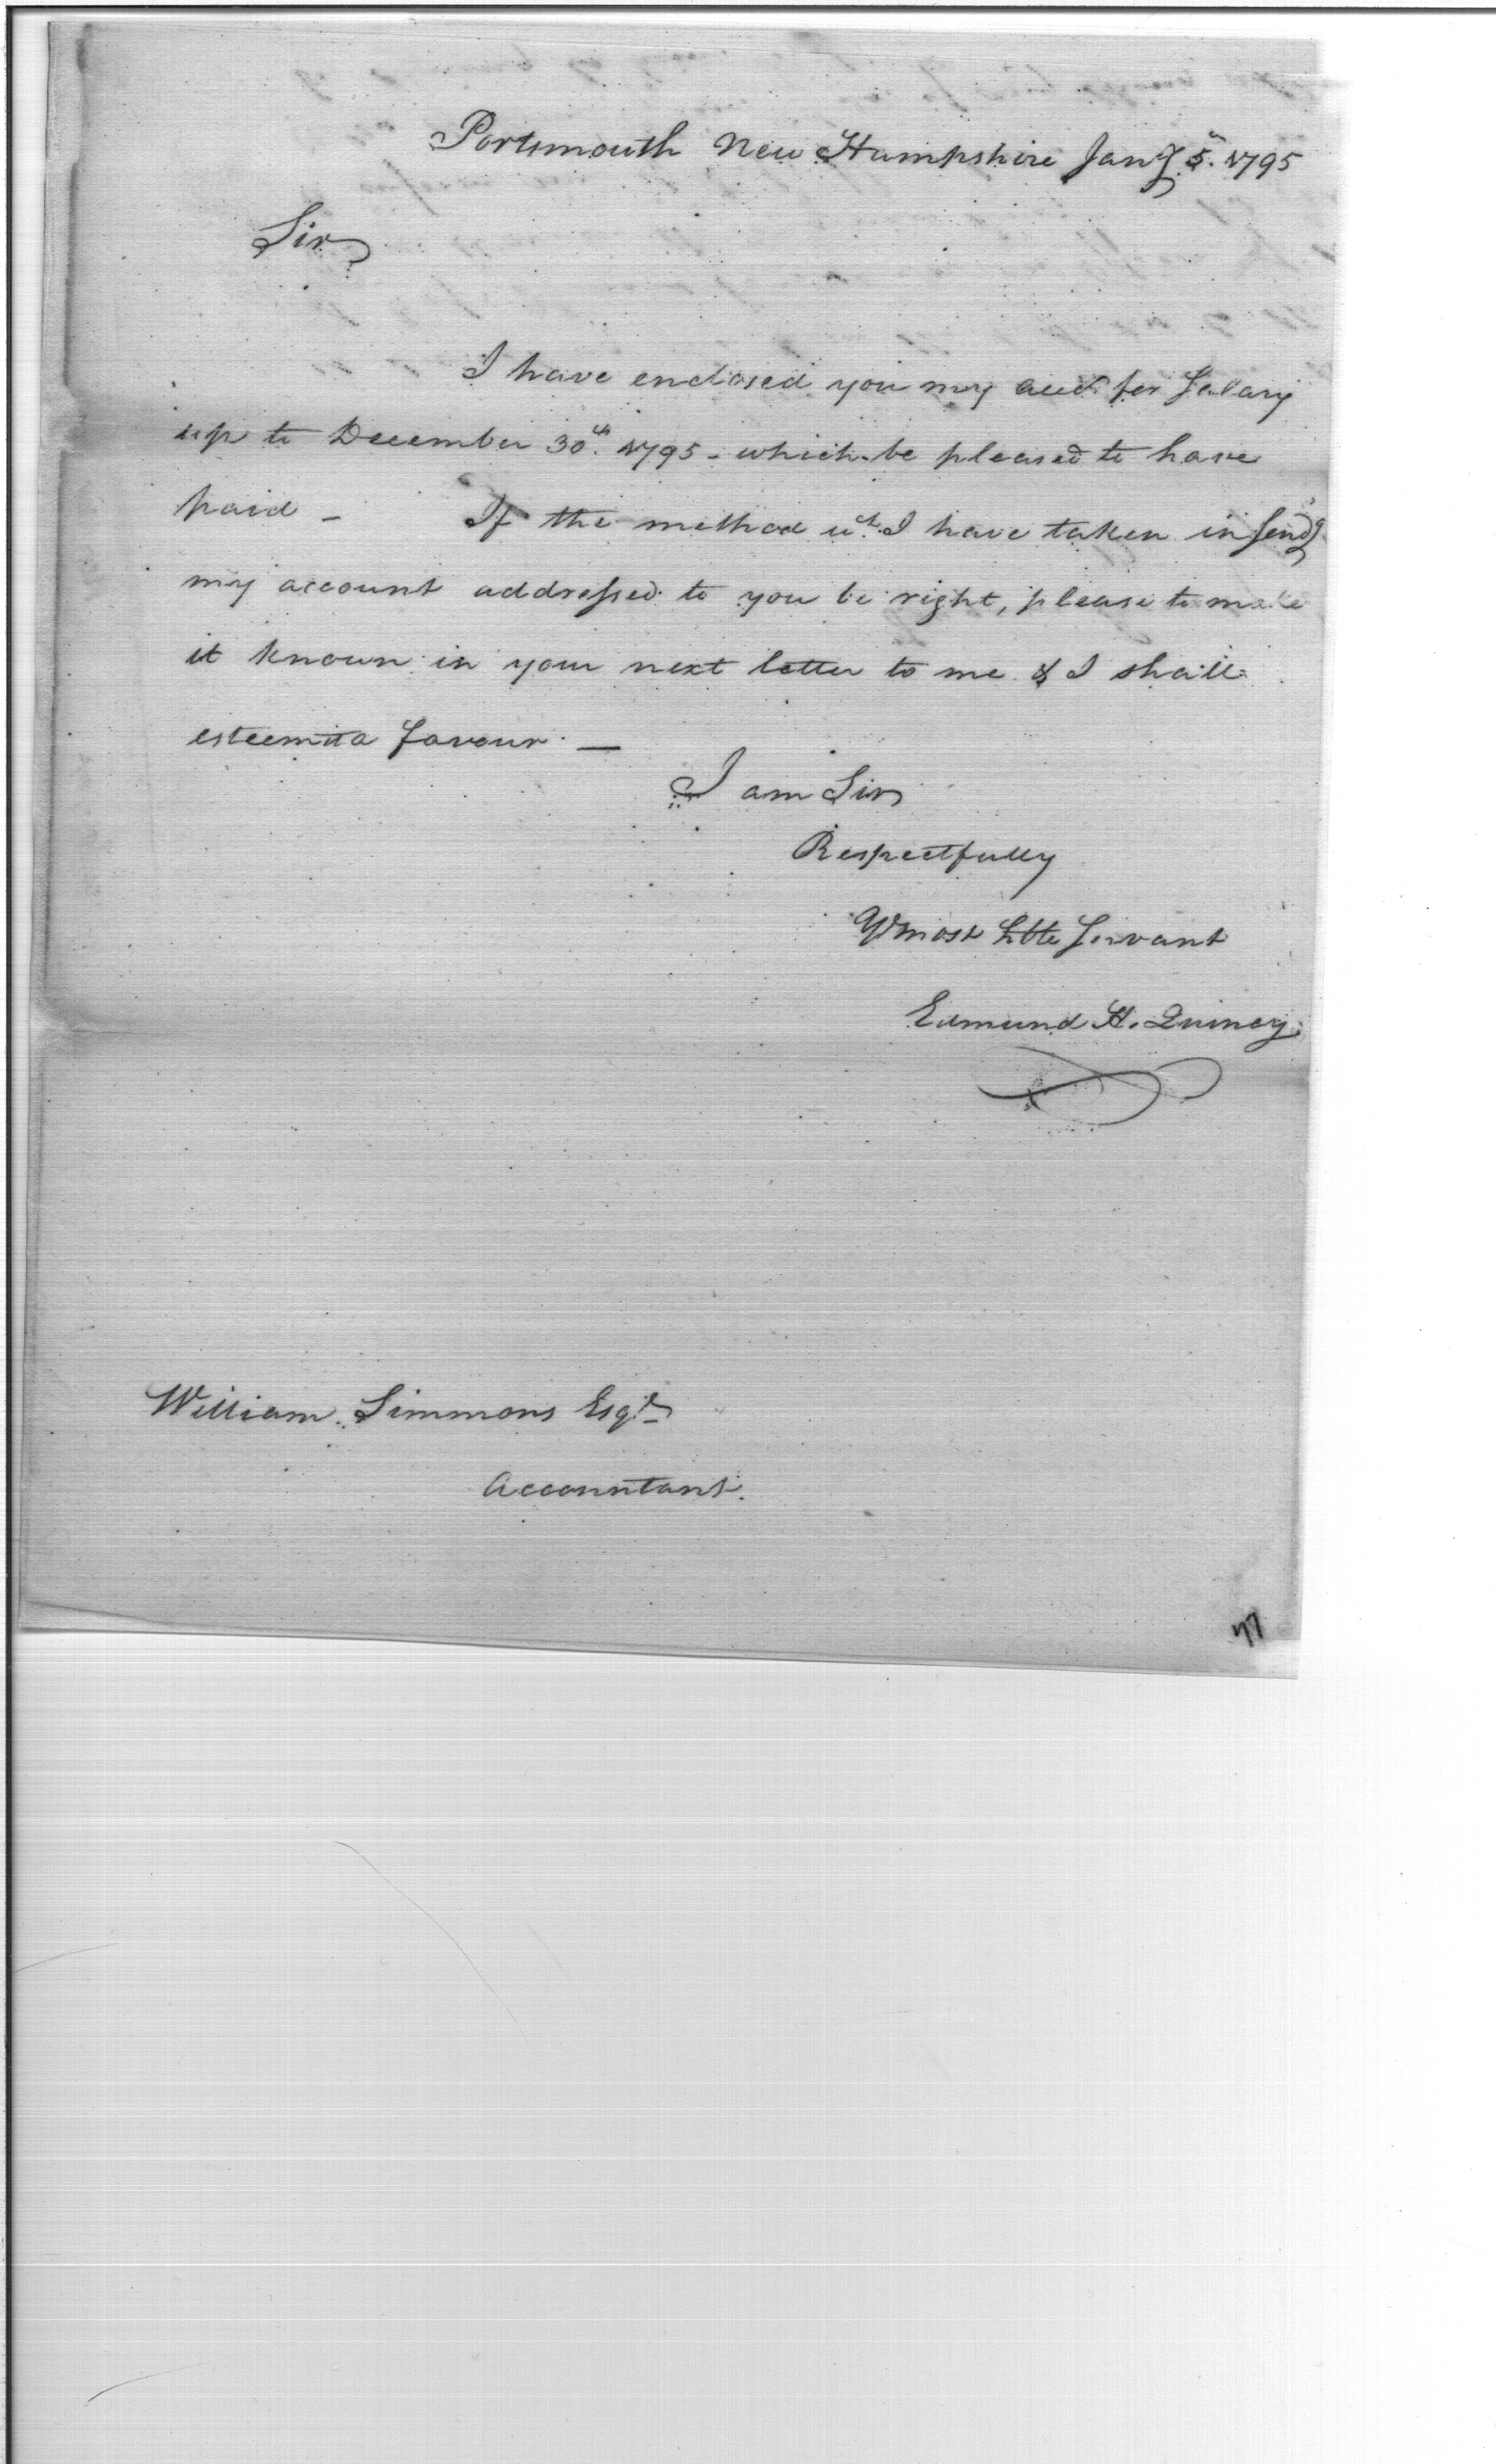 Portsmouth New Hampshire Jany. 5. 1795
Sir
I have enclosed you my acct for Salary
up to December 30th. 1795 - which be pleased to have
paid - If the method wch. I have taken in sendg
my account addressed to you be right, please to make
it known in your next letter to me & I shall
esteem it a favour. —
I am Sir
Respectfully
Yr most Hble Servant
Edmund H. Quincy.
William Simmons Esqr.
Accountant.
77